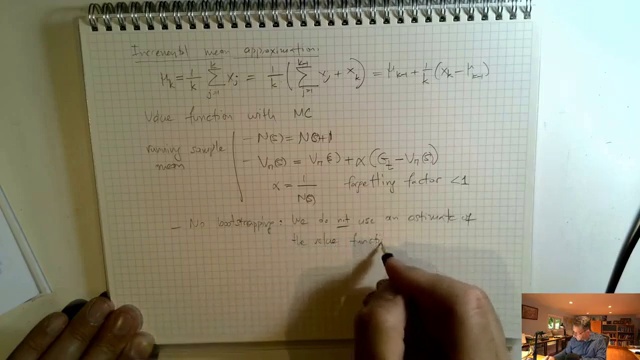 Incremental mean approximation:
μ_k = 1/k Σ_{j=1}^{k} x_j = 1/k ( Σ_{j=1}^{k-1} x_j + x_k ) = μ_{k-1} + 1/k (x_k − μ_{k-1})
Value function with MC
running sample mean
– N(s) = N(s)+1
– V_π(s) = V_π(s) + α (G_t − V_π(s))
α = 1/N(s) forgetting factor < 1
– No bootstrapping: We do not use an estimate of
the value funct